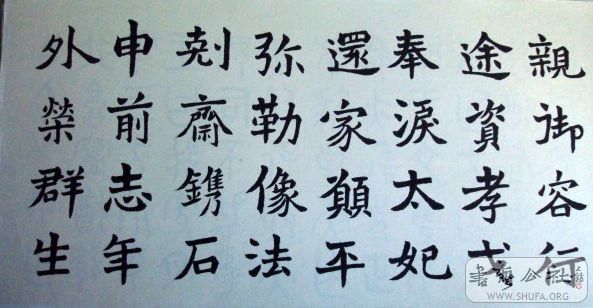 親御容行
途資孝戈
奉淚太妃
還家願平
弥勒像法
剋齋鐫石
申前志年
外榮群生
書藝公社
WWW.SHUFA.ORG